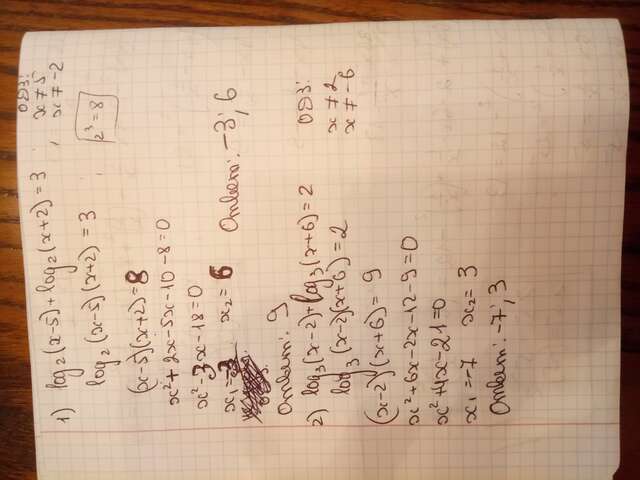 1) log₂(x-5)+log₂(x+2)=3
ОДЗ:
x≠5
x≠-2
log₂(x-5)(x+2)=3
2³=8
(x-5)(x+2)=8
x²+2x-5x-10-8=0
x²-3x-18=0
x₁=-3 x₂=6
Ответ: -3; 6
Ответ: 9
2) log₃(x-2)+log₃(x+6)=2
ОДЗ:
x≠2
x≠-6
log₃(x-2)(x+6)=2
(x-2)(x+6)=9
x²+6x-2x-12-9=0
x²+4x-21=0
x₁=-7 x₂=3
Ответ: -7; 3